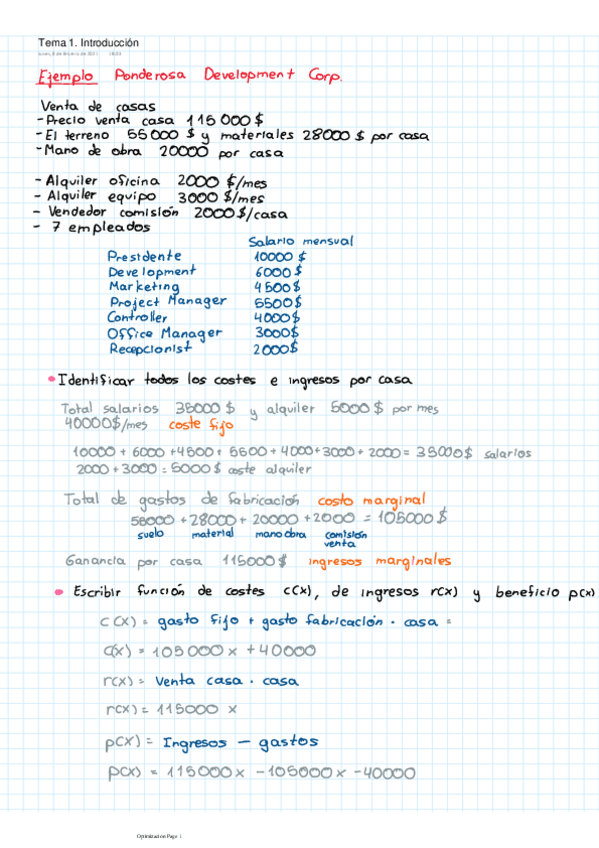 Tema 1. Introducción
Ejemplo Ponderosa Development Corp.
Venta de casas
- Precio venta casa 115000$
- El terreno 55000 $ y materiales 28000 $ por casa
- Mano de obra 20000 por casa
- Alquiler oficina 2000 $/mes
- Alquiler equipo 3000 $/mes
- Vendedor comisión 2000 $/casa
- 7 empleados
Salario mensual
Presidente 10000 $
Development 6000 $
Marketing 4500 $
Project Manager 5500 $
Controller 4000 $
Office Manager 3000 $
Recepcionist 2000 $
• Identificar todos los costes e ingresos por casa
Total salarios 35000 $ y alquiler 5000 $ por mes
40000$/mes coste fijo
10000 + 6000 + 4500 + 5500 + 4000 + 3000 + 2000 = 35000$ salarios
2000 + 3000 = 5000 $ coste alquiler
Total de gastos de fabricación costo marginal
55000 + 28000 + 20000 + 2000 = 105000 $
suelo material mano obra comisión
venta
Ganancia por casa 115000 $ ingresos marginales
• Escribir función de costes c(x), de ingresos r(x) y beneficio p(x)
c(x) = gasto fijo + gasto fabricación · casa =
c(x) = 105000 x + 40000
r(x) = Venta casa · casa
r(x) = 115000 x
p(x) = Ingresos - gastos
p(x) = 115000x - 105000x - 40000
Optimización Page 1